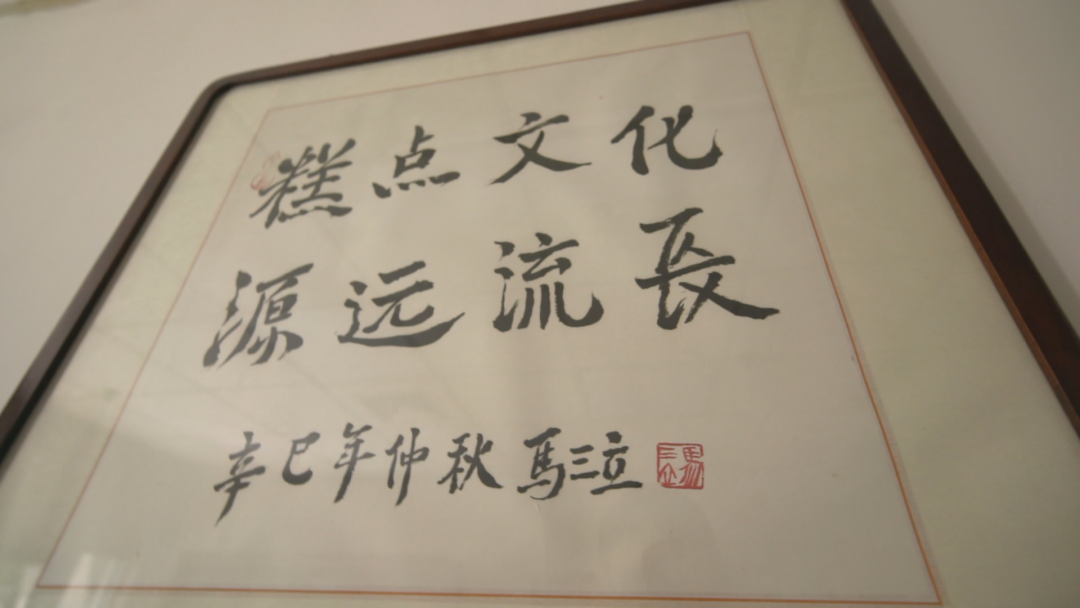 糕点文化
源远流長
辛巳年仲秋 馬三立
馬三立